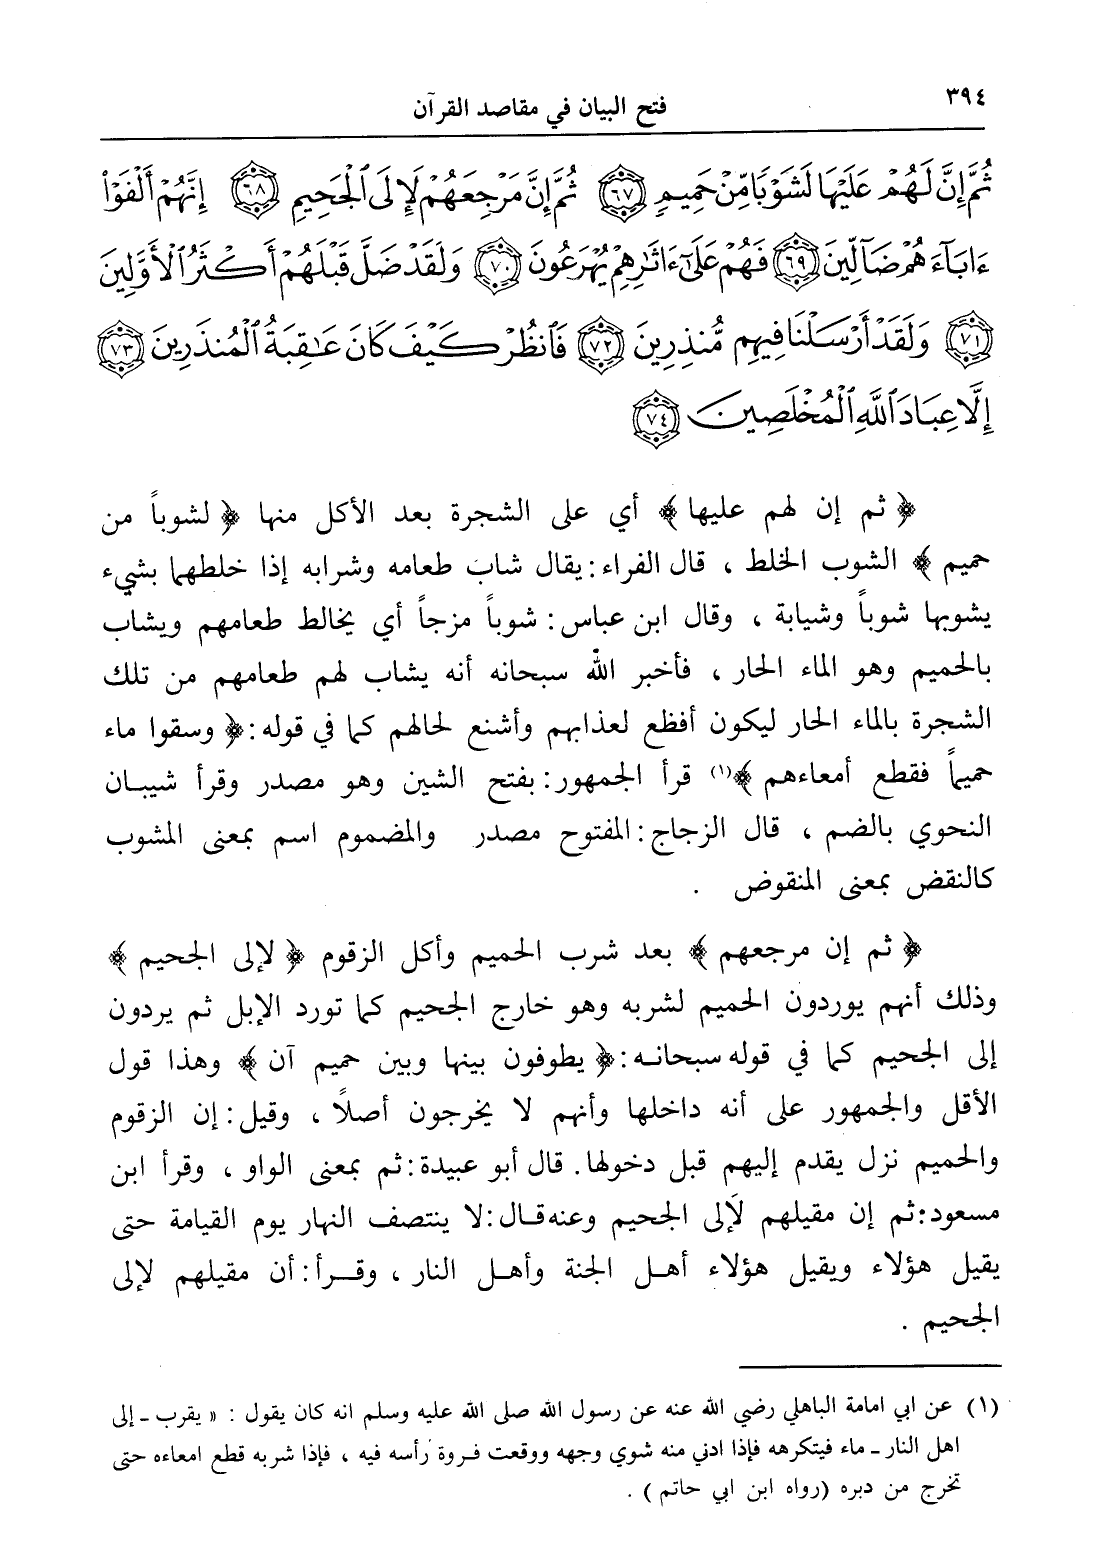 ٣٩٤
فتح البيان في مقاصد القرآن
ثُمَّ إِنَّ لَهُمْ عَلَيْهَا لَشَوْبًا مِّنْ حَمِيمٍ ٦٧ ثُمَّ إِنَّ مَرْجِعَهُمْ لَإِلَى ٱلْجَحِيمِ ٦٨ إِنَّهُمْ أَلْفَوْا۟
ءَابَآءَهُمْ ضَآلِّينَ ٦٩ فَهُمْ عَلَىٰٓ ءَاثَٰرِهِمْ يُهْرَعُونَ ٧٠ وَلَقَدْ ضَلَّ قَبْلَهُمْ أَكْثَرُ ٱلْأَوَّلِينَ
٧١ وَلَقَدْ أَرْسَلْنَا فِيهِم مُّنذِرِينَ ٧٢ فَٱنظُرْ كَيْفَ كَانَ عَٰقِبَةُ ٱلْمُنذَرِينَ ٧٣
إِلَّا عِبَادَ ٱللَّهِ ٱلْمُخْلَصِينَ ٧٤
﴿ ثم إن لهم عليها ﴾ أي على الشجرة بعد الأكل منها ﴿ لشوباً من
حميم ﴾ الشوب الخلط ، قال الفراء : يقال شاب طعامه وشرابه إذا خلطهما بشيء
يشوبها شوباً وشيابة ، وقال ابن عباس : شوباً مزجاً أي يخالط طعامهم ويشاب
بالحميم وهو الماء الحار ، فأخبر الله سبحانه أنه يشاب لهم طعامهم من تلك
الشجرة بالماء الحار ليكون أفظع لعذابهم وأشنع لحالهم كما في قوله : ﴿ وسقوا ماء
حميماً فقطع أمعاءهم ﴾(١) قرأ الجمهور : بفتح الشين وهو مصدر وقرأ شيبان
النحوي بالضم ، قال الزجاج : المفتوح مصدر والمضموم اسم بمعنى المشوب
كالنقض بمعنى المنقوض .
﴿ ثم إن مرجعهم ﴾ بعد شرب الحميم وأكل الزقوم ﴿ لإلى الجحيم ﴾
وذلك أنهم يوردون الحميم لشربه وهو خارج الجحيم كما تورد الإبل ثم يردون
إلى الجحيم كما في قوله سبحانه : ﴿ يطوفون بينها وبين حميم آن ﴾ وهذا قول
الأقل والجمهور على أنه داخلها وأنهم لا يخرجون أصلاً ، وقيل : إن الزقوم
والحميم نزل يقدم إليهم قبل دخولها . قال أبو عبيدة : ثم بمعنى الواو ، وقرأ ابن
مسعود : ثم إن مقيلهم لَإلى الجحيم وعنه قال : لا ينتصف النهار يوم القيامة حتى
يقيل هؤلاء ويقيل هؤلاء أهل الجنة وأهل النار ، وقرأ : أن مقيلهم لإلى
الجحيم .
(١) عن ابي امامة الباهلي رضي الله عنه عن رسول الله صلى الله عليه وسلم انه كان يقول : « يقرب ـ إلى
اهل النار ـ ماء فيتكرهه فإذا ادني منه شوي وجهه ووقعت فروة رأسه فيه ، فإذا شربه قطع امعاءه حتى
تخرج من دبره (رواه ابن ابي حاتم ) .